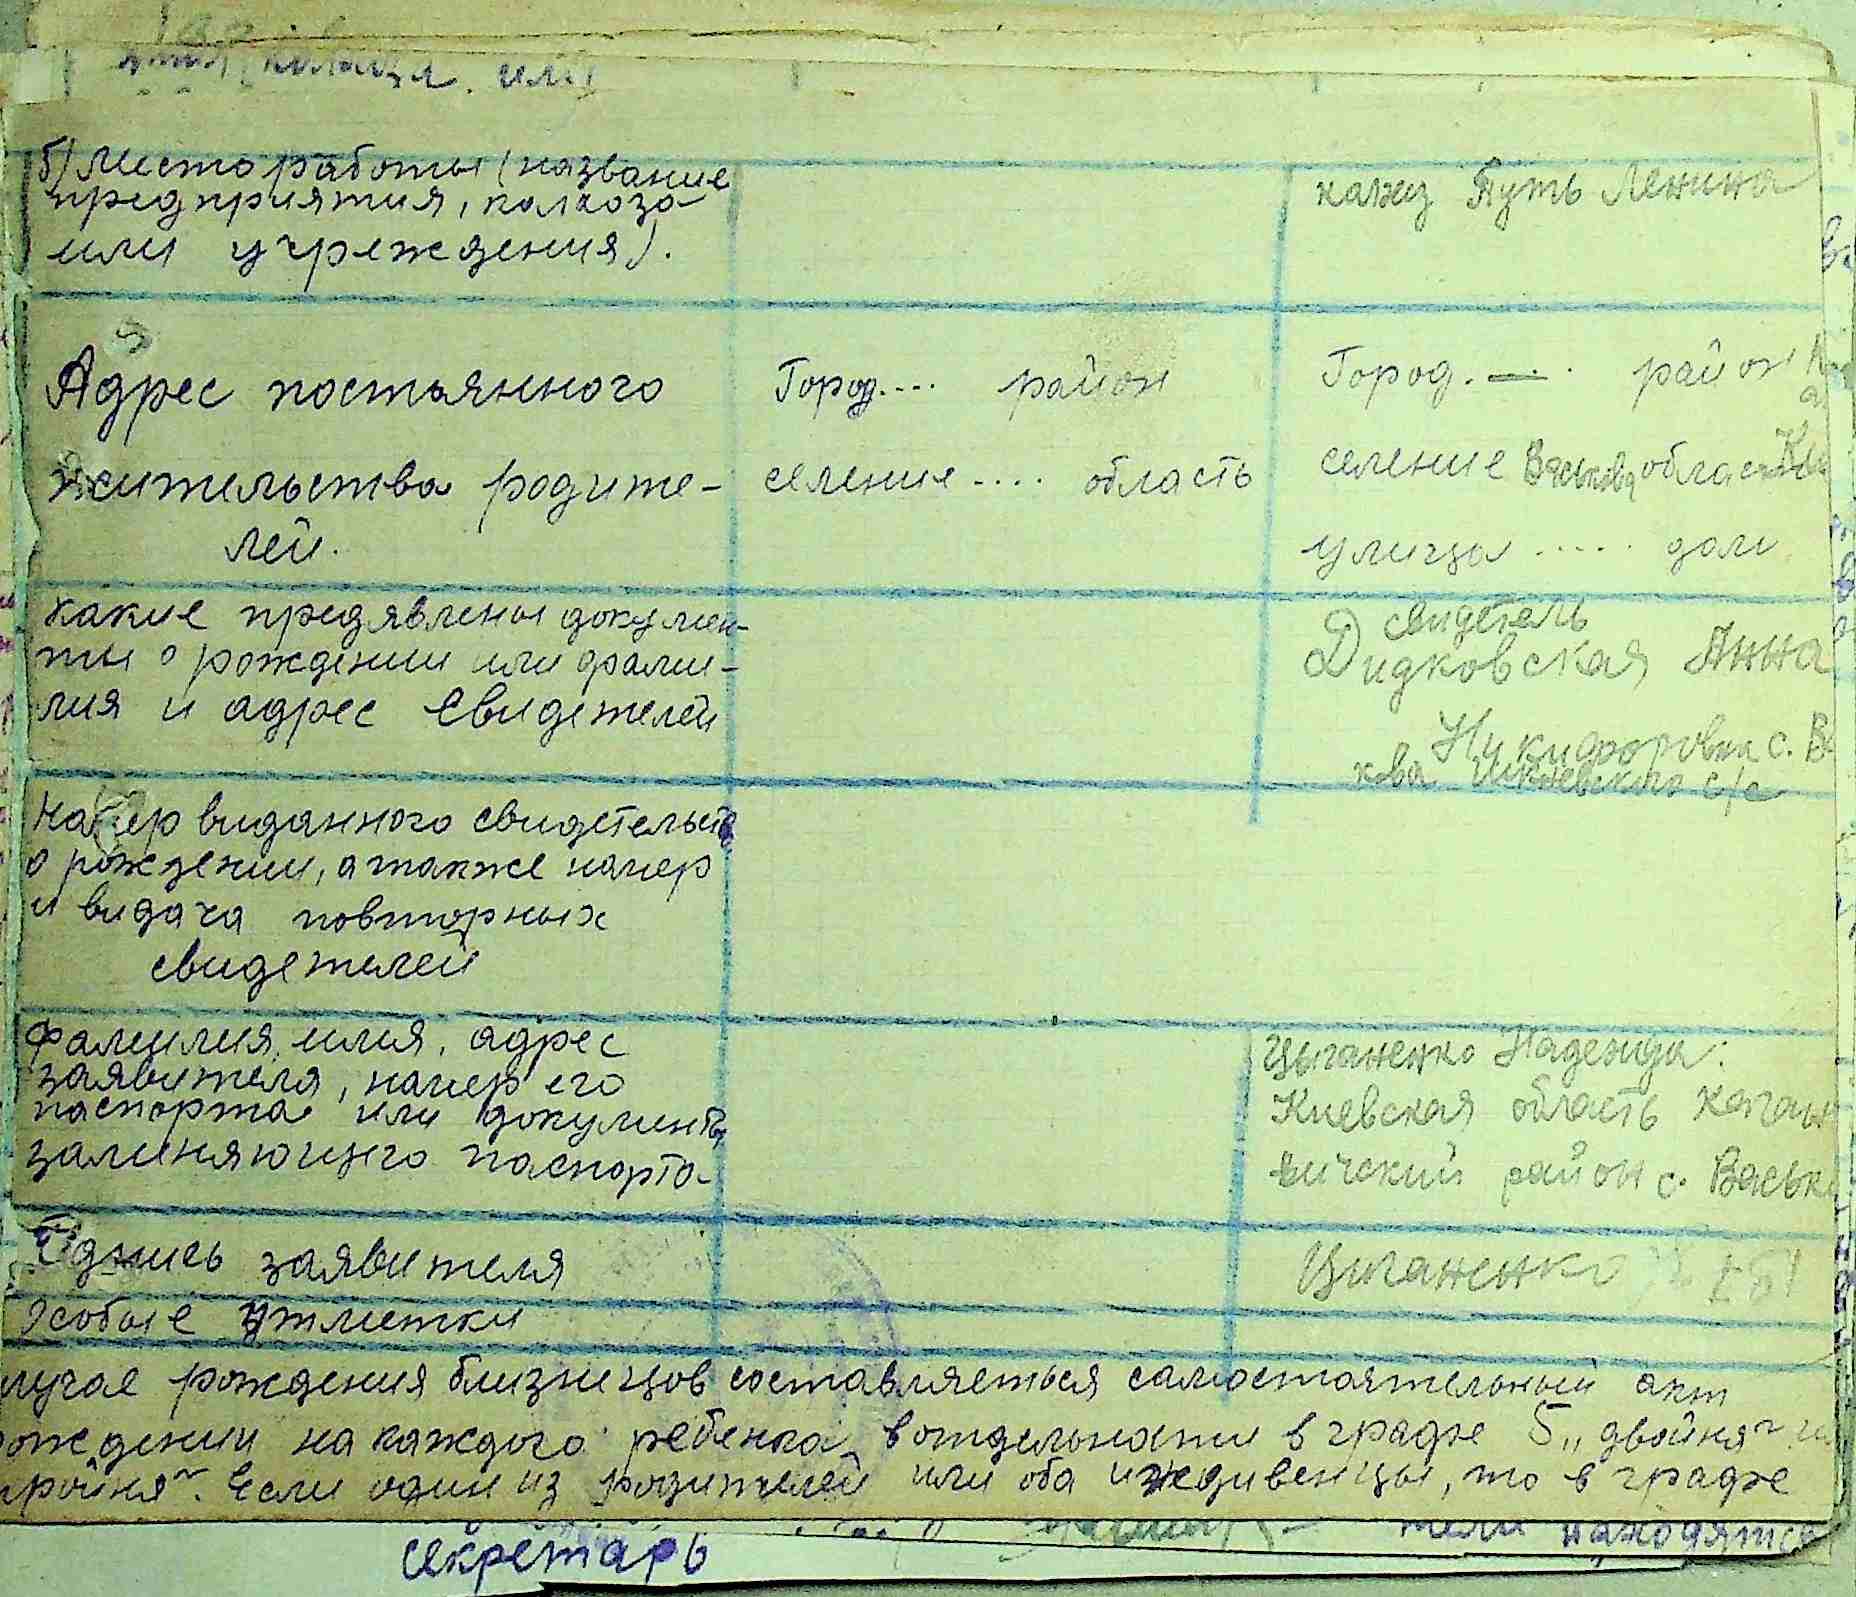 или
б) Место работы (название
предприятия, колхоза
или учреждения).
колхоз Путь Ленина
Адрес постьянного
жительства родите-
лей.
Город.... район
селение.... область
Город. — . район
селение Васькова область
улица ..... дом
какие предявлены докумен-
ты о рождении или фами-
лия и адрес Свидетелей
свидетель
Дидковская Анна
Никифоровна с. Ва
кова с/с
Намер виданного свидетельств
о рождении, а также намер
и видача повторных
свидетелей
Фамилия, имя, адрес
заявителя, намер его
паспорта или документа,
заминяющего паспорта
Цыганенко Надежда.
Киевская область Каган
вичский район с. Васьк
Подпись заявителя
Цыганенко
Особые отметки
лучае рождения близнецов составляеться самостоятельный акт
рождении на каждого ребенка в отдельности в графе 5 „двойня" и
тройня". Если один из родителей или оба иждивенцы, то в графе
секретарь
тели находятся